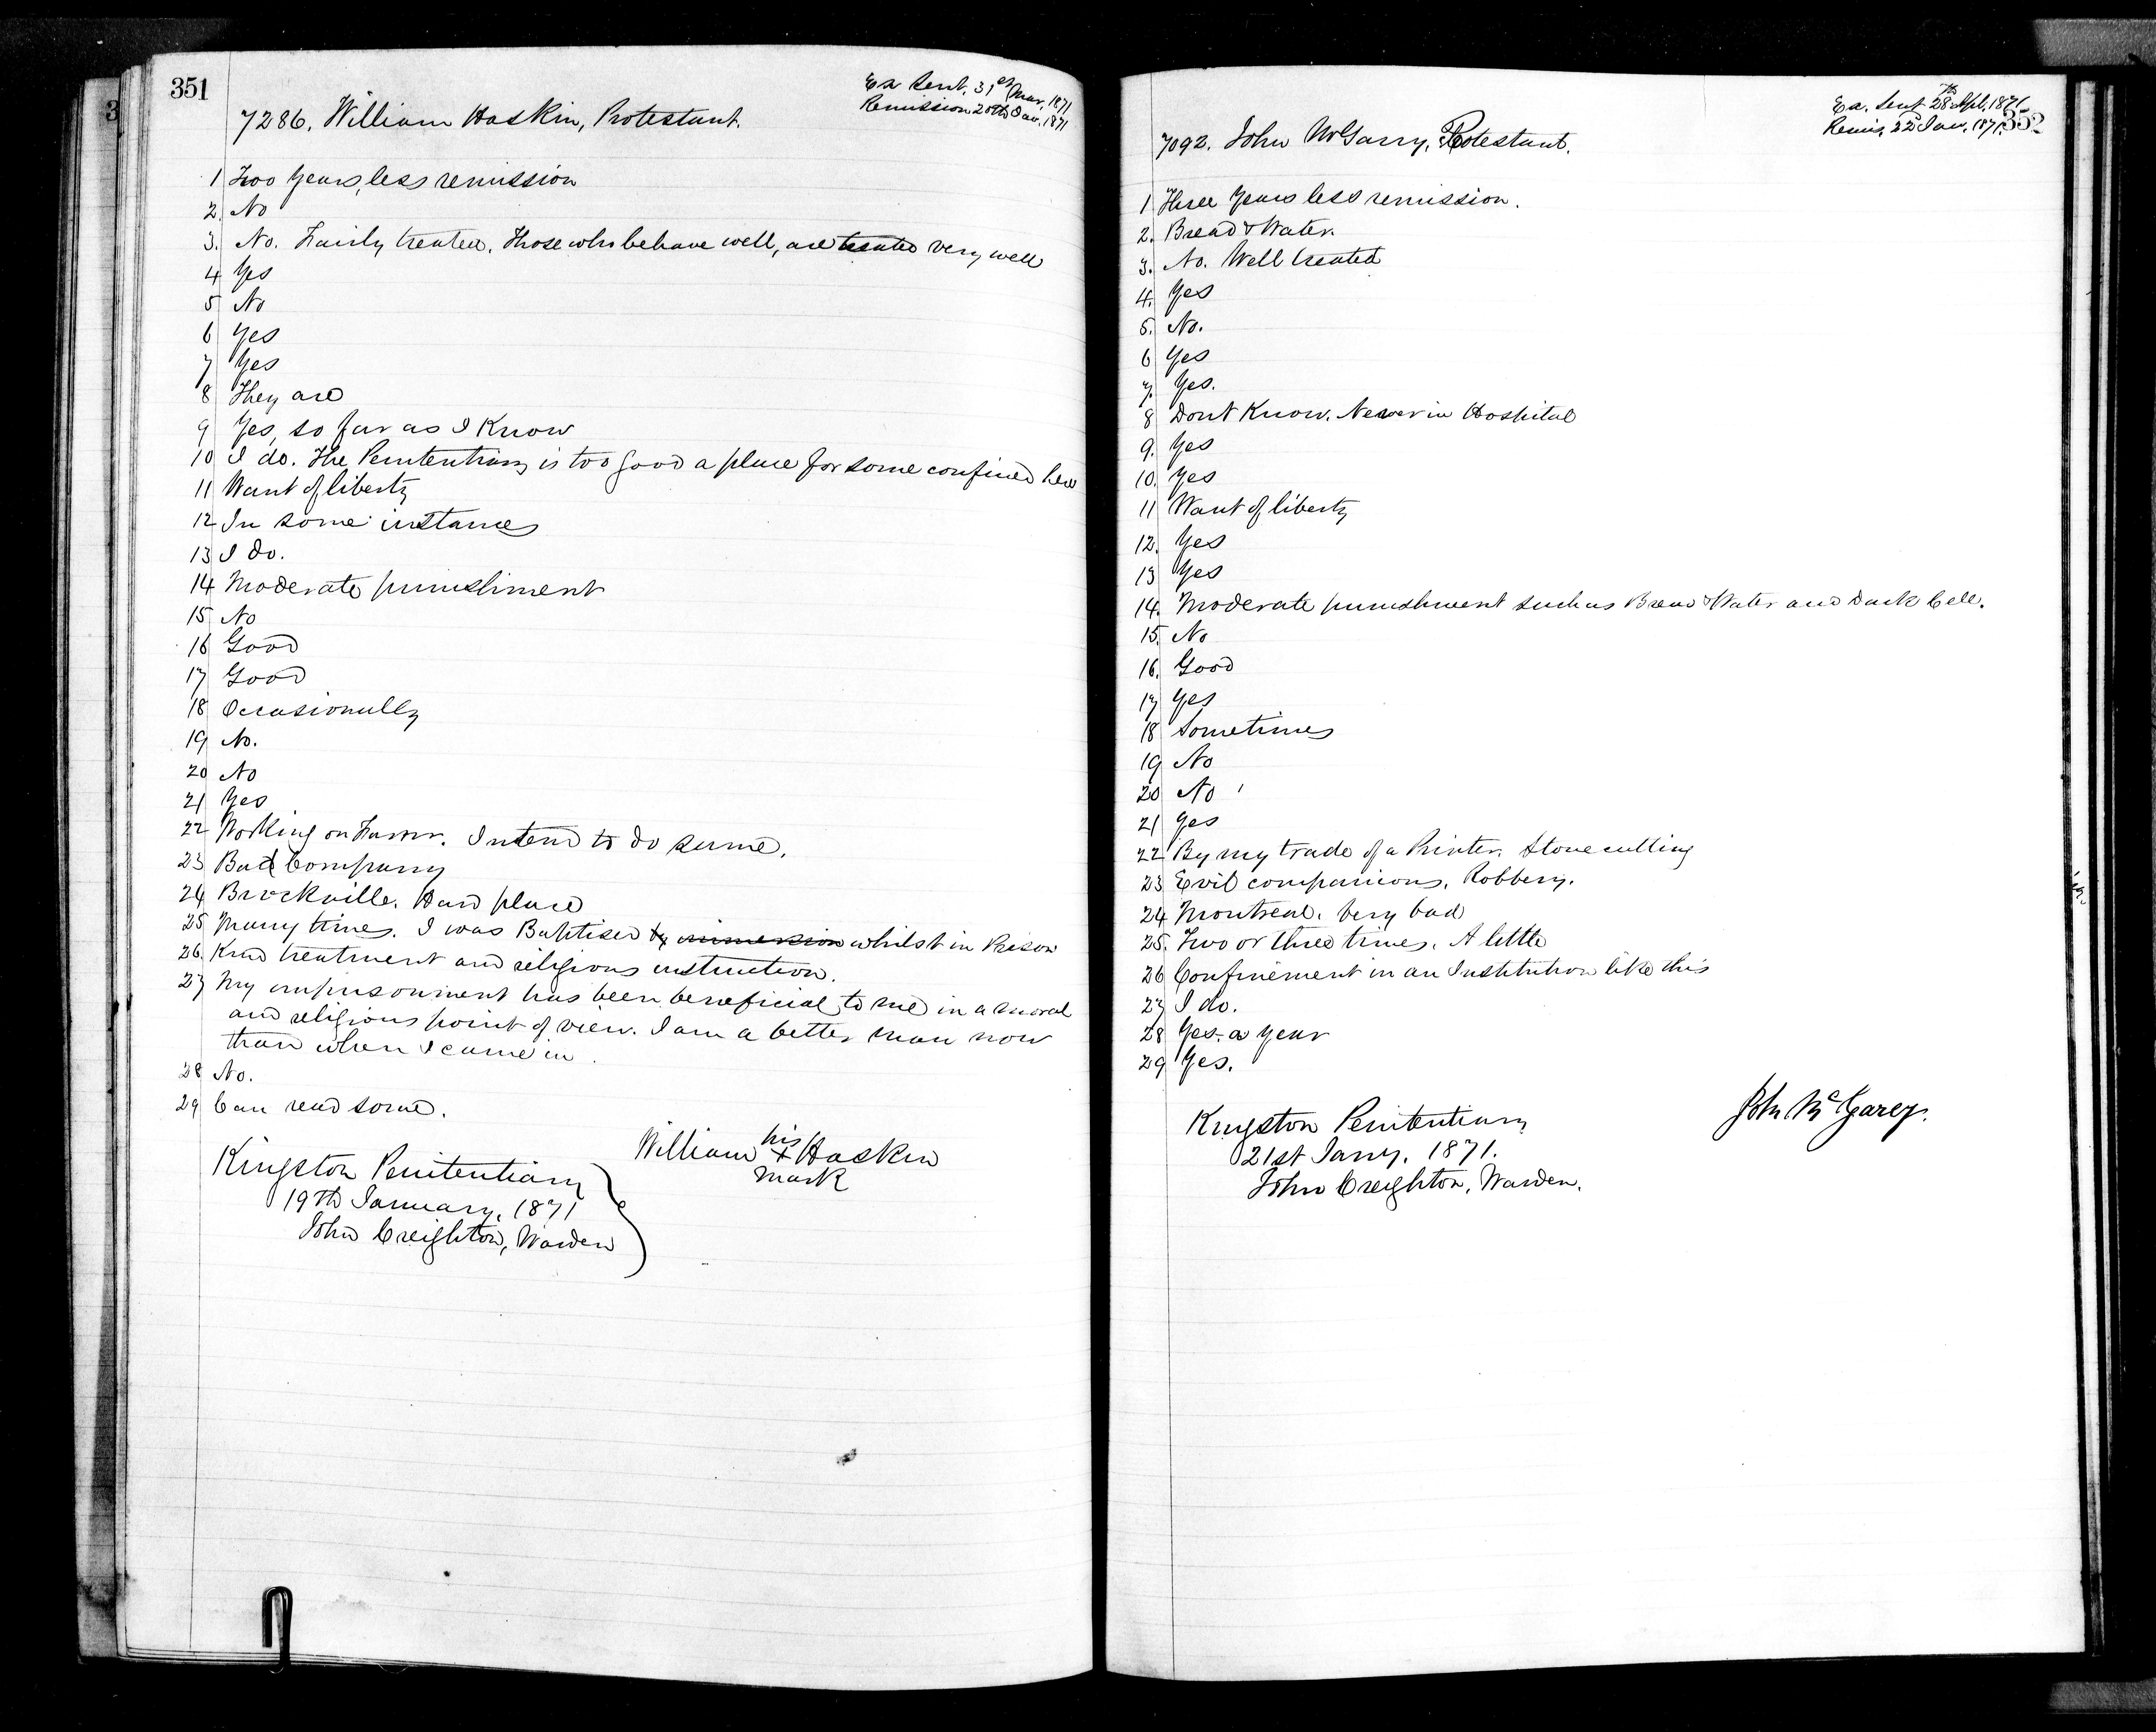 351
Ex Sent. 31st Mar. 1871
Remission 20th Jan. 1871
7286. William Haskin, Protestant.
1 Two Years, less remission
2. No
3. No. Fairly treated. Those who behave well, are treated very well
4 Yes
5 No
6 Yes
7 Yes
8 They are
9 Yes, so far as I Know
10 I do. The Penitentiary is too good a place for some confined here
11 Want of liberty
12 In some instances
13 I do.
14 Moderate punishment
15 No
16 Good
17 Good
18 Occasionally
19 No.
20 No
21 Yes
22 Working on Farm. Intend to do same.
23 Bad Company
24 Brockville. Hard place
25 Many times. I was Baptised by immersion whilst in Prison
26. Kind treatment and religious instruction.
27 My imprisonment has been beneficial to me in a moral
and religious point of view. I am a better man now
than when I came in.
28 No.
29 Can read some.
William his + Haskin
mark
Kingston Penitentiary
19th January, 1871
John Creighton, Warden
352
Ex. Sent 28th Apl. 1871
Remis. 22d Jan. 1871
7092. John McGarry, Protestant.
1 Three Years less remission.
2. Bread & Water.
3. No. Well treated
4. Yes
5. No.
6 Yes
7. Yes.
8 Dont Know. Never in Hospital
9. Yes
10. Yes
11 Want of liberty
12. Yes
13 Yes
14. Moderate punishment such as Bread & Water and Dark Cell.
15. No
16. Good
17 Yes
18 Sometimes
19 No
20 No
21 Yes
22 By my trade of a Printer. Stone cutting
23 Evil companions. Robbery.
24 Montreal. Very bad
25. Two or three times. A little
26 Confinement in an Institution like this
27 I do.
28 Yes. a year
29 Yes.
John McGarey.
Kingston Penitentiary
21st Jany. 1871.
John Creighton, Warden.